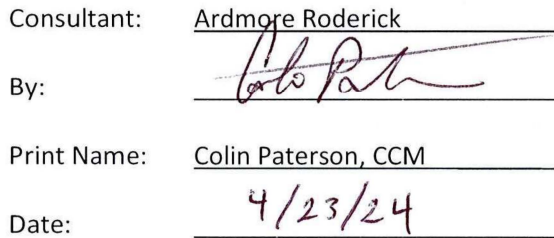 Consultant: Ardmore Roderick
By:
Print Name: Colin Paterson, CCM
Date: 4/23/24